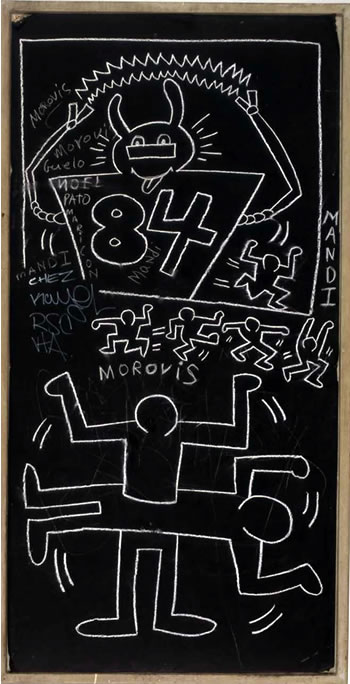 MOROVIS
MOROVIS
Guelo
NOEL
PATO
84
Mandi
MANDI
MANDI
CHEZ
MOROVIS